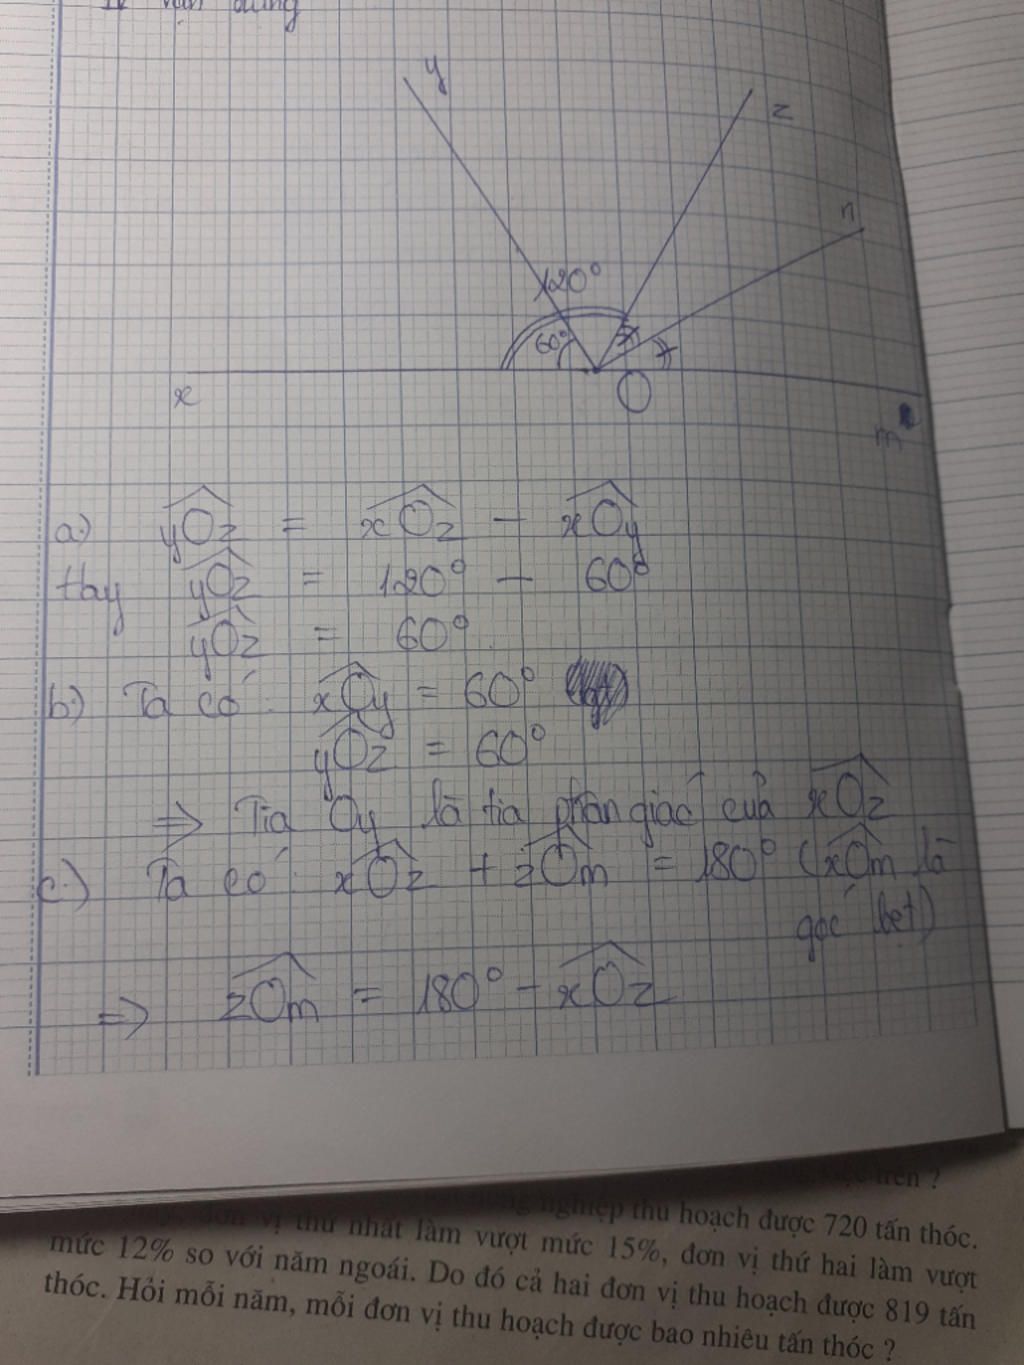 vận dụng
y
z
n
120°
60°
x
O
m
a) yOz = xOz - xOy
thay yOz = 120° - 60°
yOz = 60°
b) Ta có: xOy = 60°
yOz = 60°
=> Tia Oy là tia phân giác của xOz
c) Ta có: xOz + zOm = 180° (xOm là
góc bẹt)
=> zOm = 180° - xOz
trên ?
nghiệp thu hoạch được 720 tấn thóc.
đơn vị thứ nhất làm vượt mức 15%, đơn vị thứ hai làm vượt
mức 12% so với năm ngoái. Do đó cả hai đơn vị thu hoạch được 819 tấn
thóc. Hỏi mỗi năm, mỗi đơn vị thu hoạch được bao nhiêu tấn thóc ?